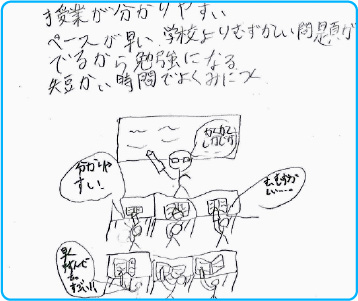 授業が分かりやすい
ペースが早い 学校よりむずかしい問題が
でるから勉強になる
短かい時間でよくみにつく
かくかく
しかじか
分かりや
すい!
む、むずか
しい…
早く
進んで
すごい!!